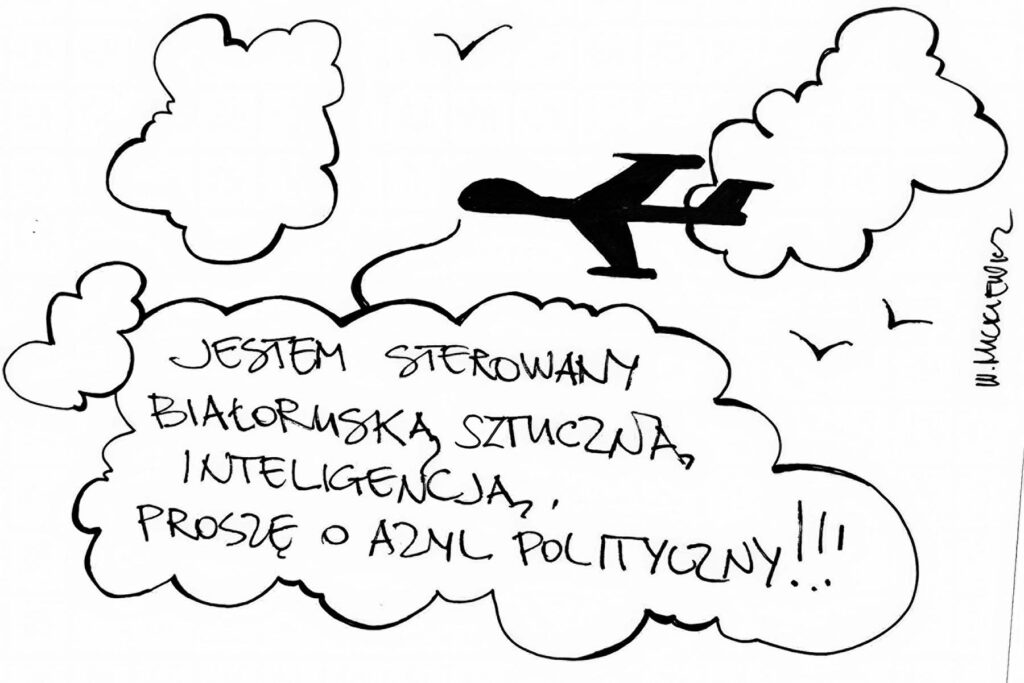 JESTEM STEROWANY
BIAŁORUSKĄ SZTUCZNĄ
INTELIGENCJĄ,
PROSZĘ O AZYL POLITYCZNY!!!
W. MICKIEWICZ